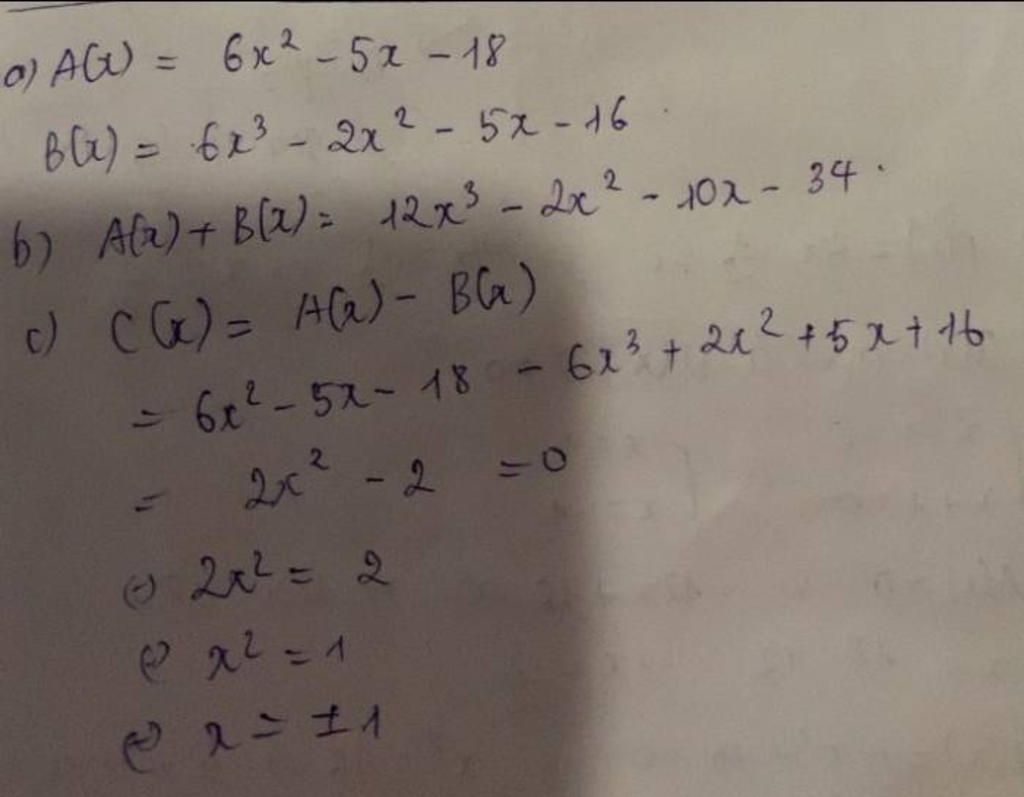 a) A(x) = 6x² - 5x - 18
B(x) = 6x³ - 2x² - 5x - 16
b) A(x) + B(x) = 12x³ - 2x² - 10x - 34.
c) C(x) = A(x) - B(x)
= 6x² - 5x - 18 - 6x³ + 2x² + 5x + 16
= 2x² - 2 = 0
(=) 2x² = 2
(=) x² = 1
(=) x = ±1